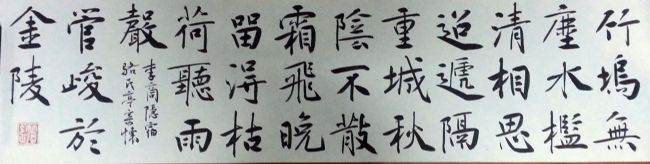 竹塢無
塵水檻
清相思
迢遞隔
重城秋
陰不散
霜飛晚
畱淂枯
荷聽雨
聲
李商隱宿
駱氏亭寄懷
管峻於
金陵